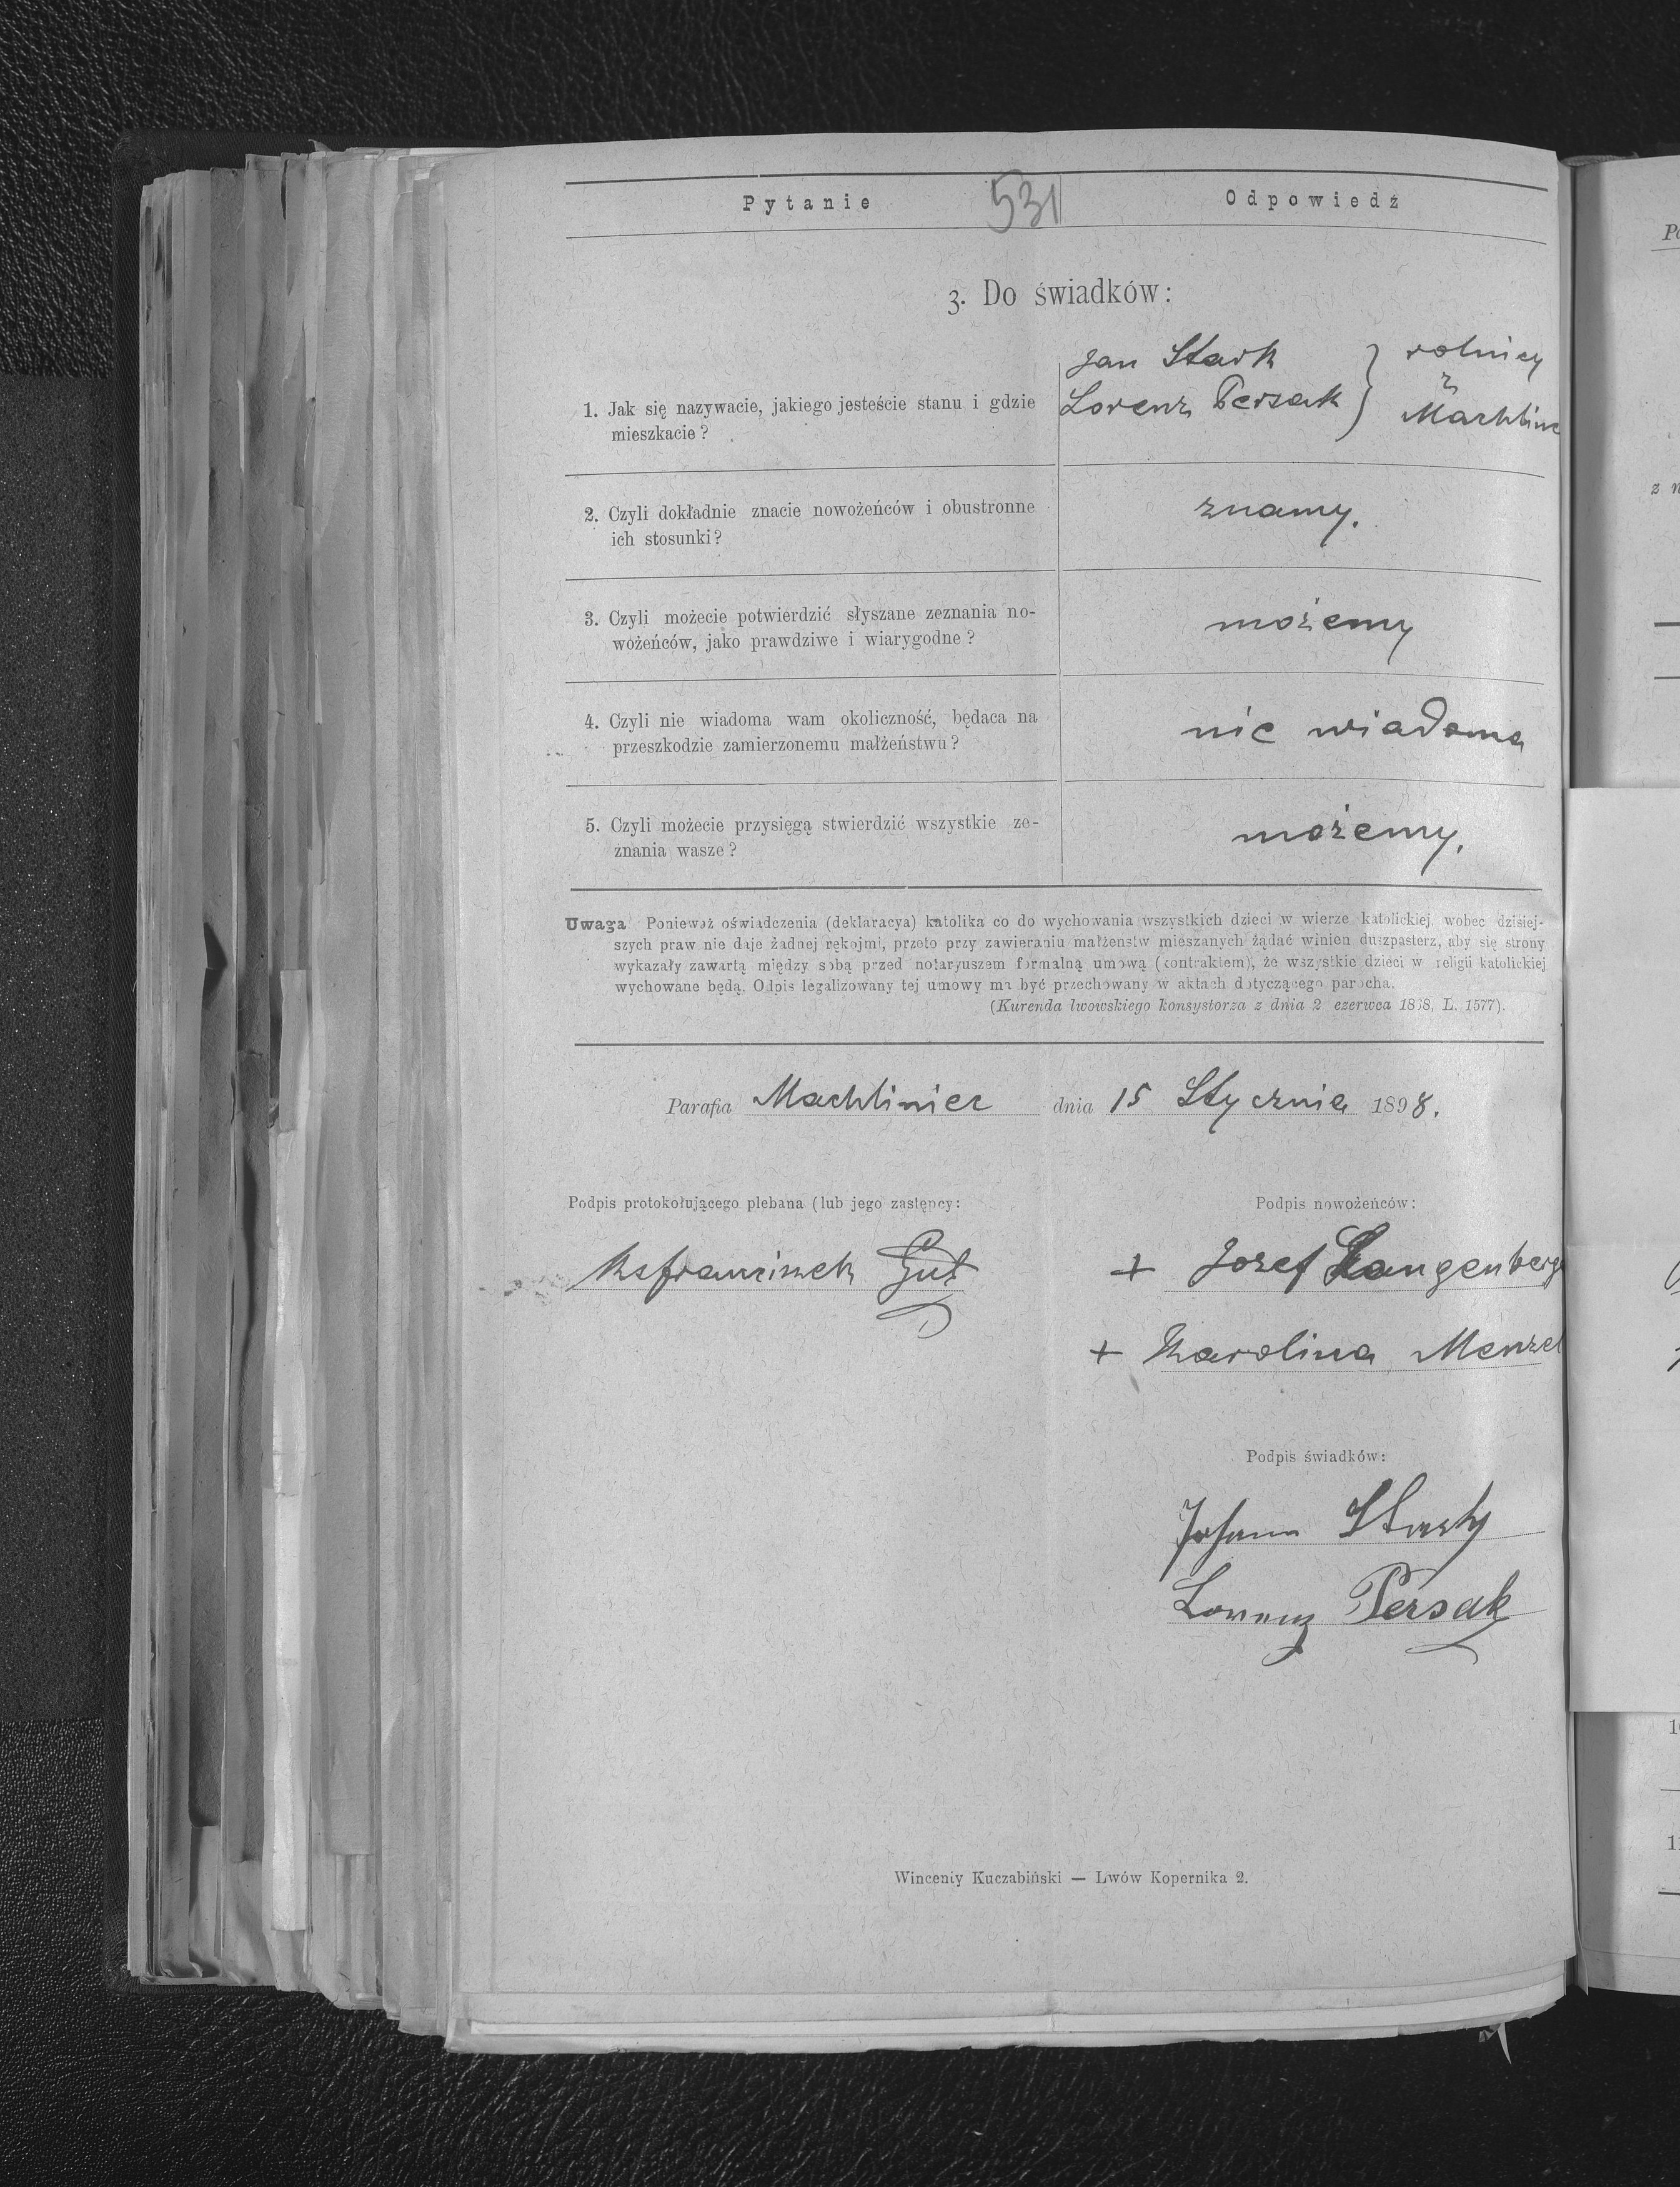 Pytanie 531 Odpowiedź
3. Do świadków:
1. Jak się nazywacie, jakiego jesteście stanu i gdzie
mieszkacie?
Jan Stark
Lorenz Perzak
rolnicy
z
Machlińc
2. Czyli dokładnie znacie nowożeńców i obustronne
ich stosunki?
znamy.
3. Czyli możecie potwierdzić słyszane zeznania no-
wożeńców, jako prawdziwe i wiarygodne?
możemy
4. Czyli nie wiadoma wam okoliczność, będaca na
przeszkodzie zamierzonemu małżeństwu?
nie wiadoma
5. Czyli możecie przysięgą stwierdzić wszystkie ze-
znania wasze?
możemy.
Uwaga Ponieważ oświadczenia (deklaracya) katolika co do wychowania wszystkich dzieci w wierze katolickiej, wobec dzisiej-
szych praw nie daje żadnej rękojmi, przeto przy zawieraniu małżenstw mieszanych żądać winien duszpasterz, aby się strony
wykazały zawartą między sobą przed notaryuszem formalną umową (kontraktem), że wszystkie dzieci w religii katolickiej
wychowane będą. Odpis legalizowany tej umowy ma być przechowany w aktach dotyczącego parocha.
(Kurenda lwowskiego konsystorza z dnia 2 czerwca 1868, L. 1577).
Parafia Machliniec dnia 15 Stycznia 1898.
Podpis protokołującego plebana (lub jego zastępcy:
Ks Franciszek Gut
Podpis nowożeńców:
+ Jozef Langenberge
+ Karolina Menzel
Podpis świadków:
Johann Stark
Lorenz Persak
Wincenty Kuczabiński — Lwów Kopernika 2.